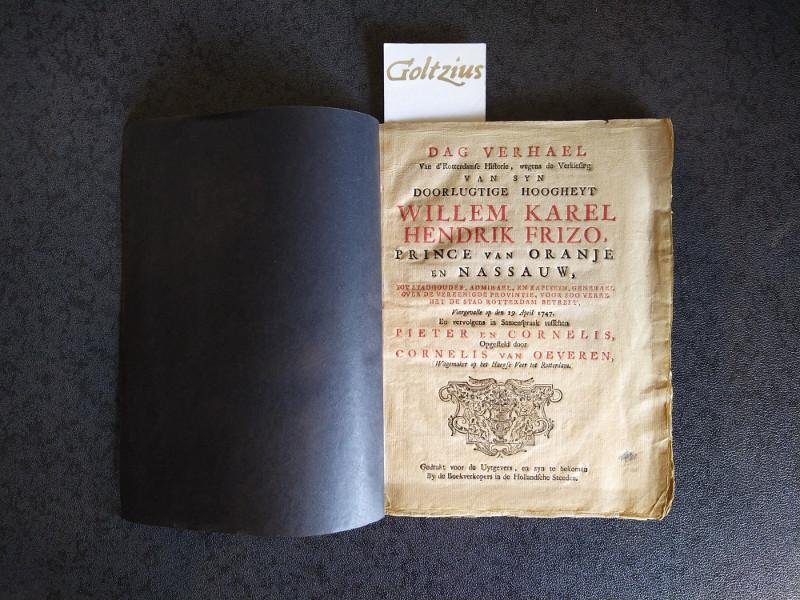 Goltzius
DAG VERHAEL
Van d'Rotterdamse Historie, wegens de Verkiesing
VAN SYN
DOORLUGTIGE HOOGHEYT
WILLEM KAREL
HENDRIK FRIZO,
PRINCE VAN ORANJE
EN NASSAUW,
TOT STADHOUDER, ADMIRAEL, EN KAPITEYN, GENERAEL
OVER DE VEREENIGDE PROVINTIE, VOOR ZOO VERRE
HET DE STAD ROTTERDAM BETREFT,
Voorgevalle op den 29 April 1747.
En vervolgens in Samenspraak tusschen
PIETER EN CORNELIS,
Opgesteld door
CORNELIS VAN OEVEREN,
Wagemaker op het Haegse Veer tot Rotterdam.
Gedrukt voor de Uytgevers, en syn te bekomen
By de Boekverkopers in de Hollandsche Steeden.